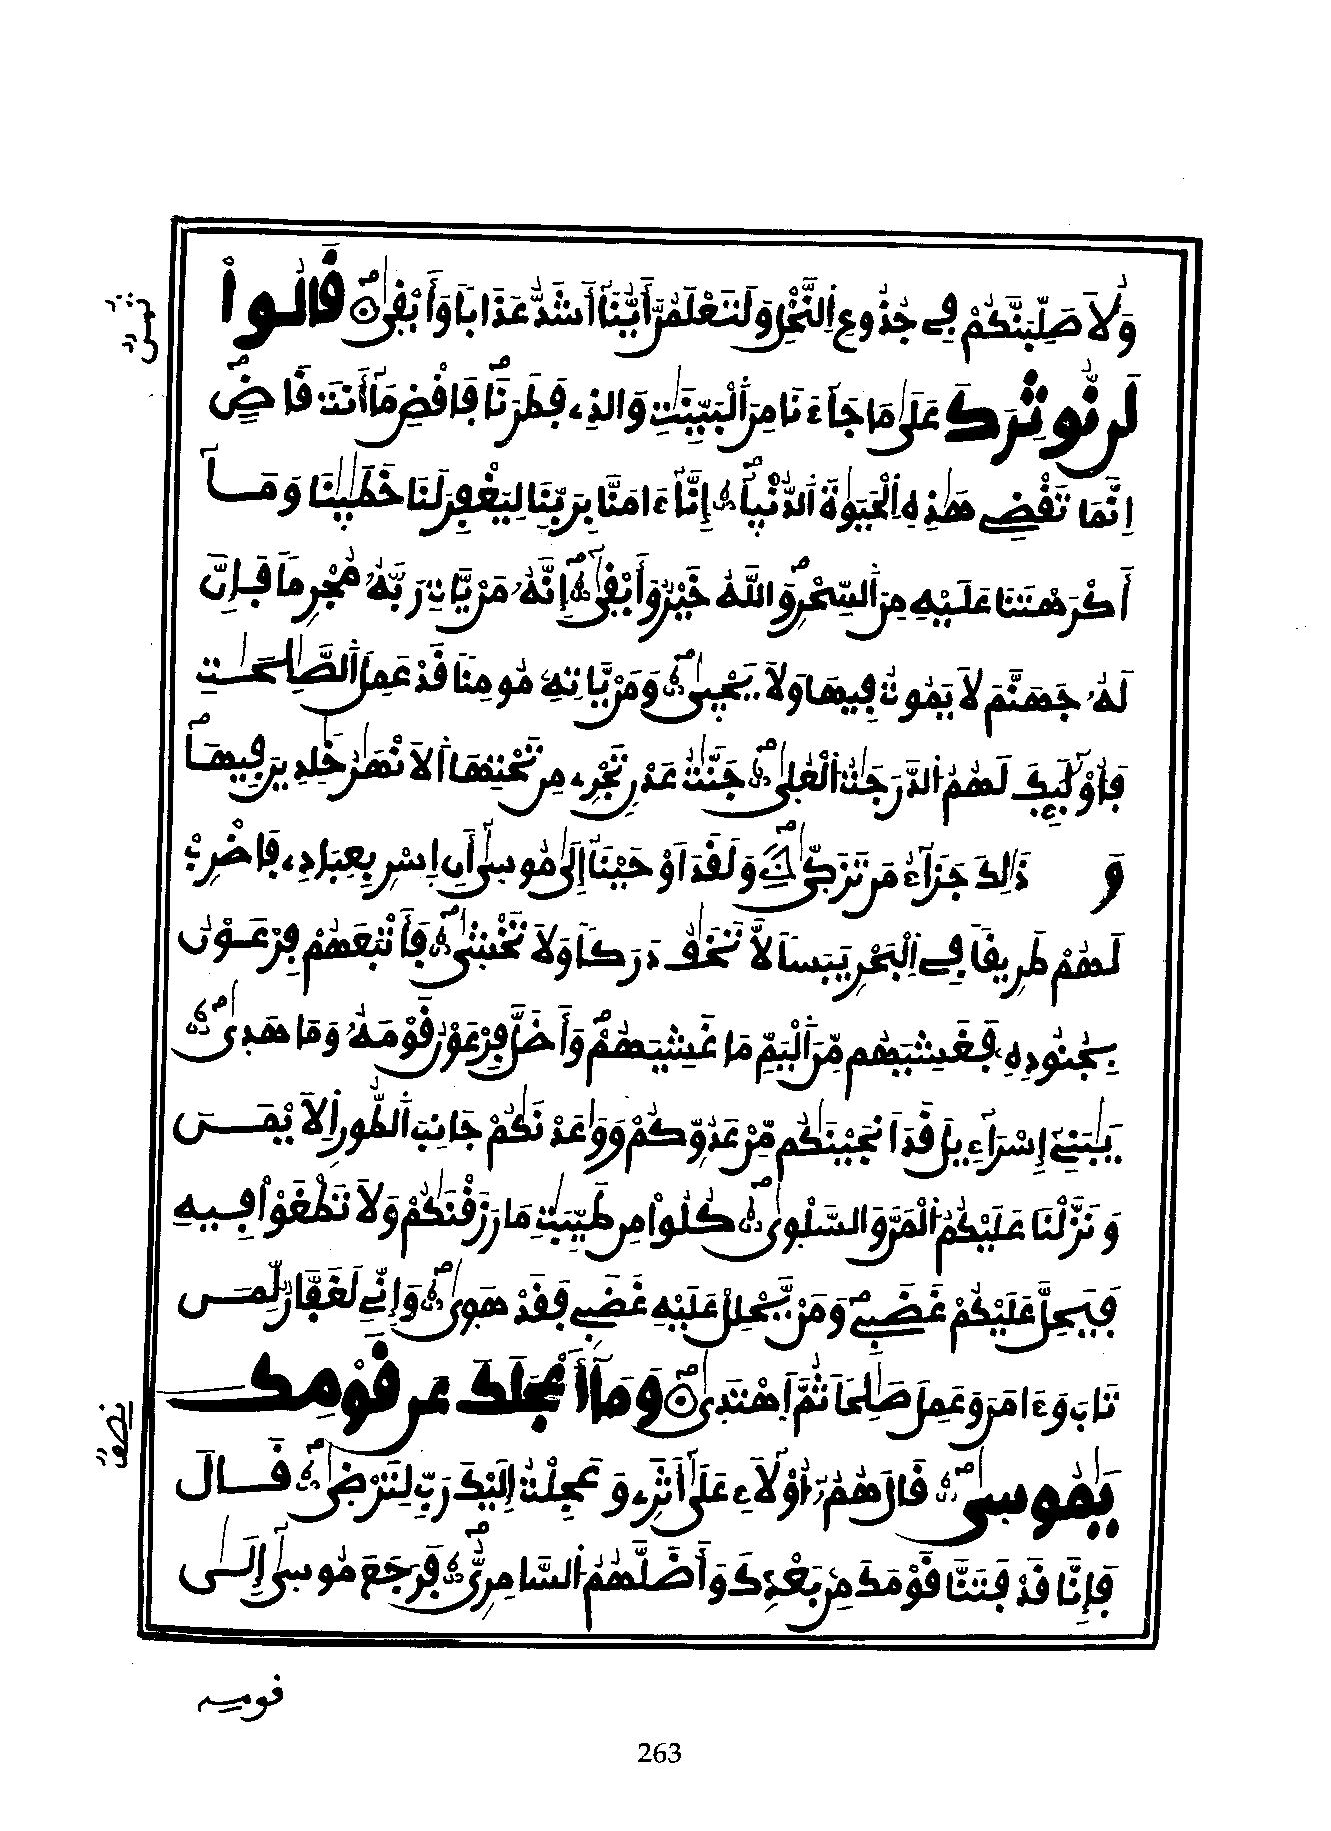 وَلَأُصَلِّبَنَّكُمْ فِے جُذُوعِ اِ۬لنَّخْلِ وَلَتَعْلَمُنَّ أَيُّنَآ أَشَدُّ عَذَاباٗ وَأَبْقٰيۖ قَالُواْ
لَن نُّوثِرَكَ عَلَىٰ مَا جَآءَنَا مِنَ اَ۬لْبَيِّنَٰتِ وَالذِے فَطَرَنَاۖ فَاقْضِ مَآ أَنتَ قَاضٍۖ
اِنَّمَا تَقْضِے هَٰذِهِ اِ۬لْحَيَوٰةَ اَ۬لدُّنْيَآۖ إِنَّآ ءَامَنَّا بِرَبِّنَا لِيَغْفِرَ لَنَا خَطَٰيَٰنَا وَمَآ
أَكْرَهْتَنَا عَلَيْهِ مِنَ اَ۬لسِّحْرِۖ وَاللَّهُ خَيْرٞ وَأَبْقٰيٓۖ إِنَّهُۥ مَنْ يَّاتِ رَبَّهُۥ مُجْرِماٗ فَإِنَّ
لَهُۥ جَهَنَّمَ لَا يَمُوتُ فِيهَا وَلَا يَحْيٰيۖ وَمَنْ يَّاتِهِۦ مُومِناٗ قَدْ عَمِلَ اَ۬لصَّٰلِحَٰتِ
فَأُوْلَٰٓئِكَ لَهُمُ اُ۬لدَّرَجَٰتُ اُ۬لْعُلٰيۖ جَنَّٰتُ عَدْنٖ تَجْرِے مِن تَحْتِهَا اَ۬لَانْهَٰرُ خَٰلِدِينَ فِيهَاۖ
وَذَٰلِكَ جَزَآءُ مَن تَزَكّٰيۖ وَلَقَدَ اَوْحَيْنَآ إِلَىٰ مُوسَىٰٓ أَنِ اِسْرِ بِعِبَادِے فَاضْرِبْ
لَهُمْ طَرِيقاٗ فِے اِ۬لْبَحْرِ يَبَساٗ لَّا تَخَٰفُ دَرَكاٗ وَلَا تَخْشٰيۖ فَأَتْبَعَهُمْ فِرْعَوْنُ
بِجُنُودِهِۦ فَغَشِيَهُم مِّنَ اَ۬لْيَمِّ مَا غَشِيَهُمْۖ وَأَضَلَّ فِرْعَوْنُ قَوْمَهُۥ وَمَا هَدٰيۖ
يَٰبَنِےٓ إِسْرَآءِيلَ قَدَ اَنجَيْنَٰكُم مِّنْ عَدُوِّكُمْ وَوَٰعَدْنَٰكُمْ جَانِبَ اَ۬لطُّورِ اِ۬لَايْمَنَ
وَنَزَّلْنَا عَلَيْكُمُ اُ۬لْمَنَّ وَالسَّلْوٰيۖ كُلُواْ مِن طَيِّبَٰتِ مَا رَزَقْنَٰكُمْ وَلَا تَطْغَوْاْ فِيهِ
فَيَحِلَّ عَلَيْكُمْ غَضَبِےۖ وَمَنْ يَّحْلِلْ عَلَيْهِ غَضَبِے فَقَدْ هَوٰيۖ وَإِنِّے لَغَفَّارٞ لِّمَن
تَابَ وَءَامَنَ وَعَمِلَ صَٰلِحاٗ ثُمَّ اَهْتَدٰيۖ وَمَآ أَعْجَلَكَ عَن قَوْمِكَ
يَٰمُوسٰيۖ قَالَ هُمُۥٓ أُوْلَآءِ عَلَىٰٓ أَثَرِے وَعَجِلْتُ إِلَيْكَ رَبِّ لِتَرْضٰيۖ قَالَ
فَإِنَّا قَدْ فَتَنَّا قَوْمَكَ مِنۢ بَعْدِكَ وَأَضَلَّهُمُ اُ۬لسَّامِرِيُّۖ فَرَجَعَ مُوسَىٰٓ إِلَىٰ
ثمن
نصف
قومه
263